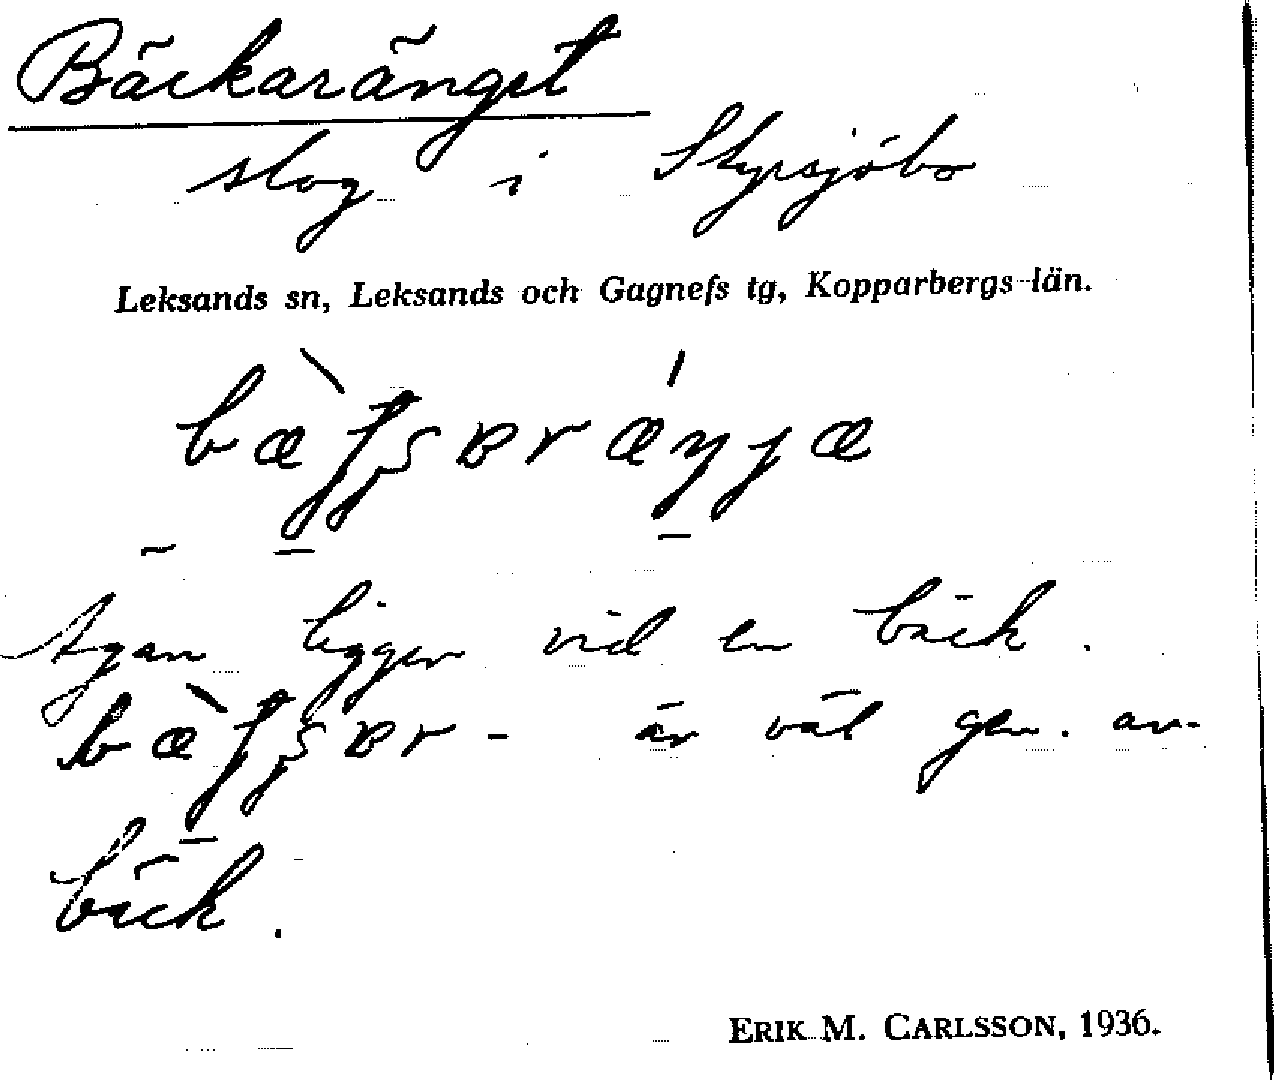 Bäckaränget
slog i Styrsjöbo
Leksands sn, Leksands och Gagnefs tg, Kopparbergs län.
Ägan ligger vid en bäck.
- är väl gen. av
bäck.
ERIK M. CARLSSON, 1936.